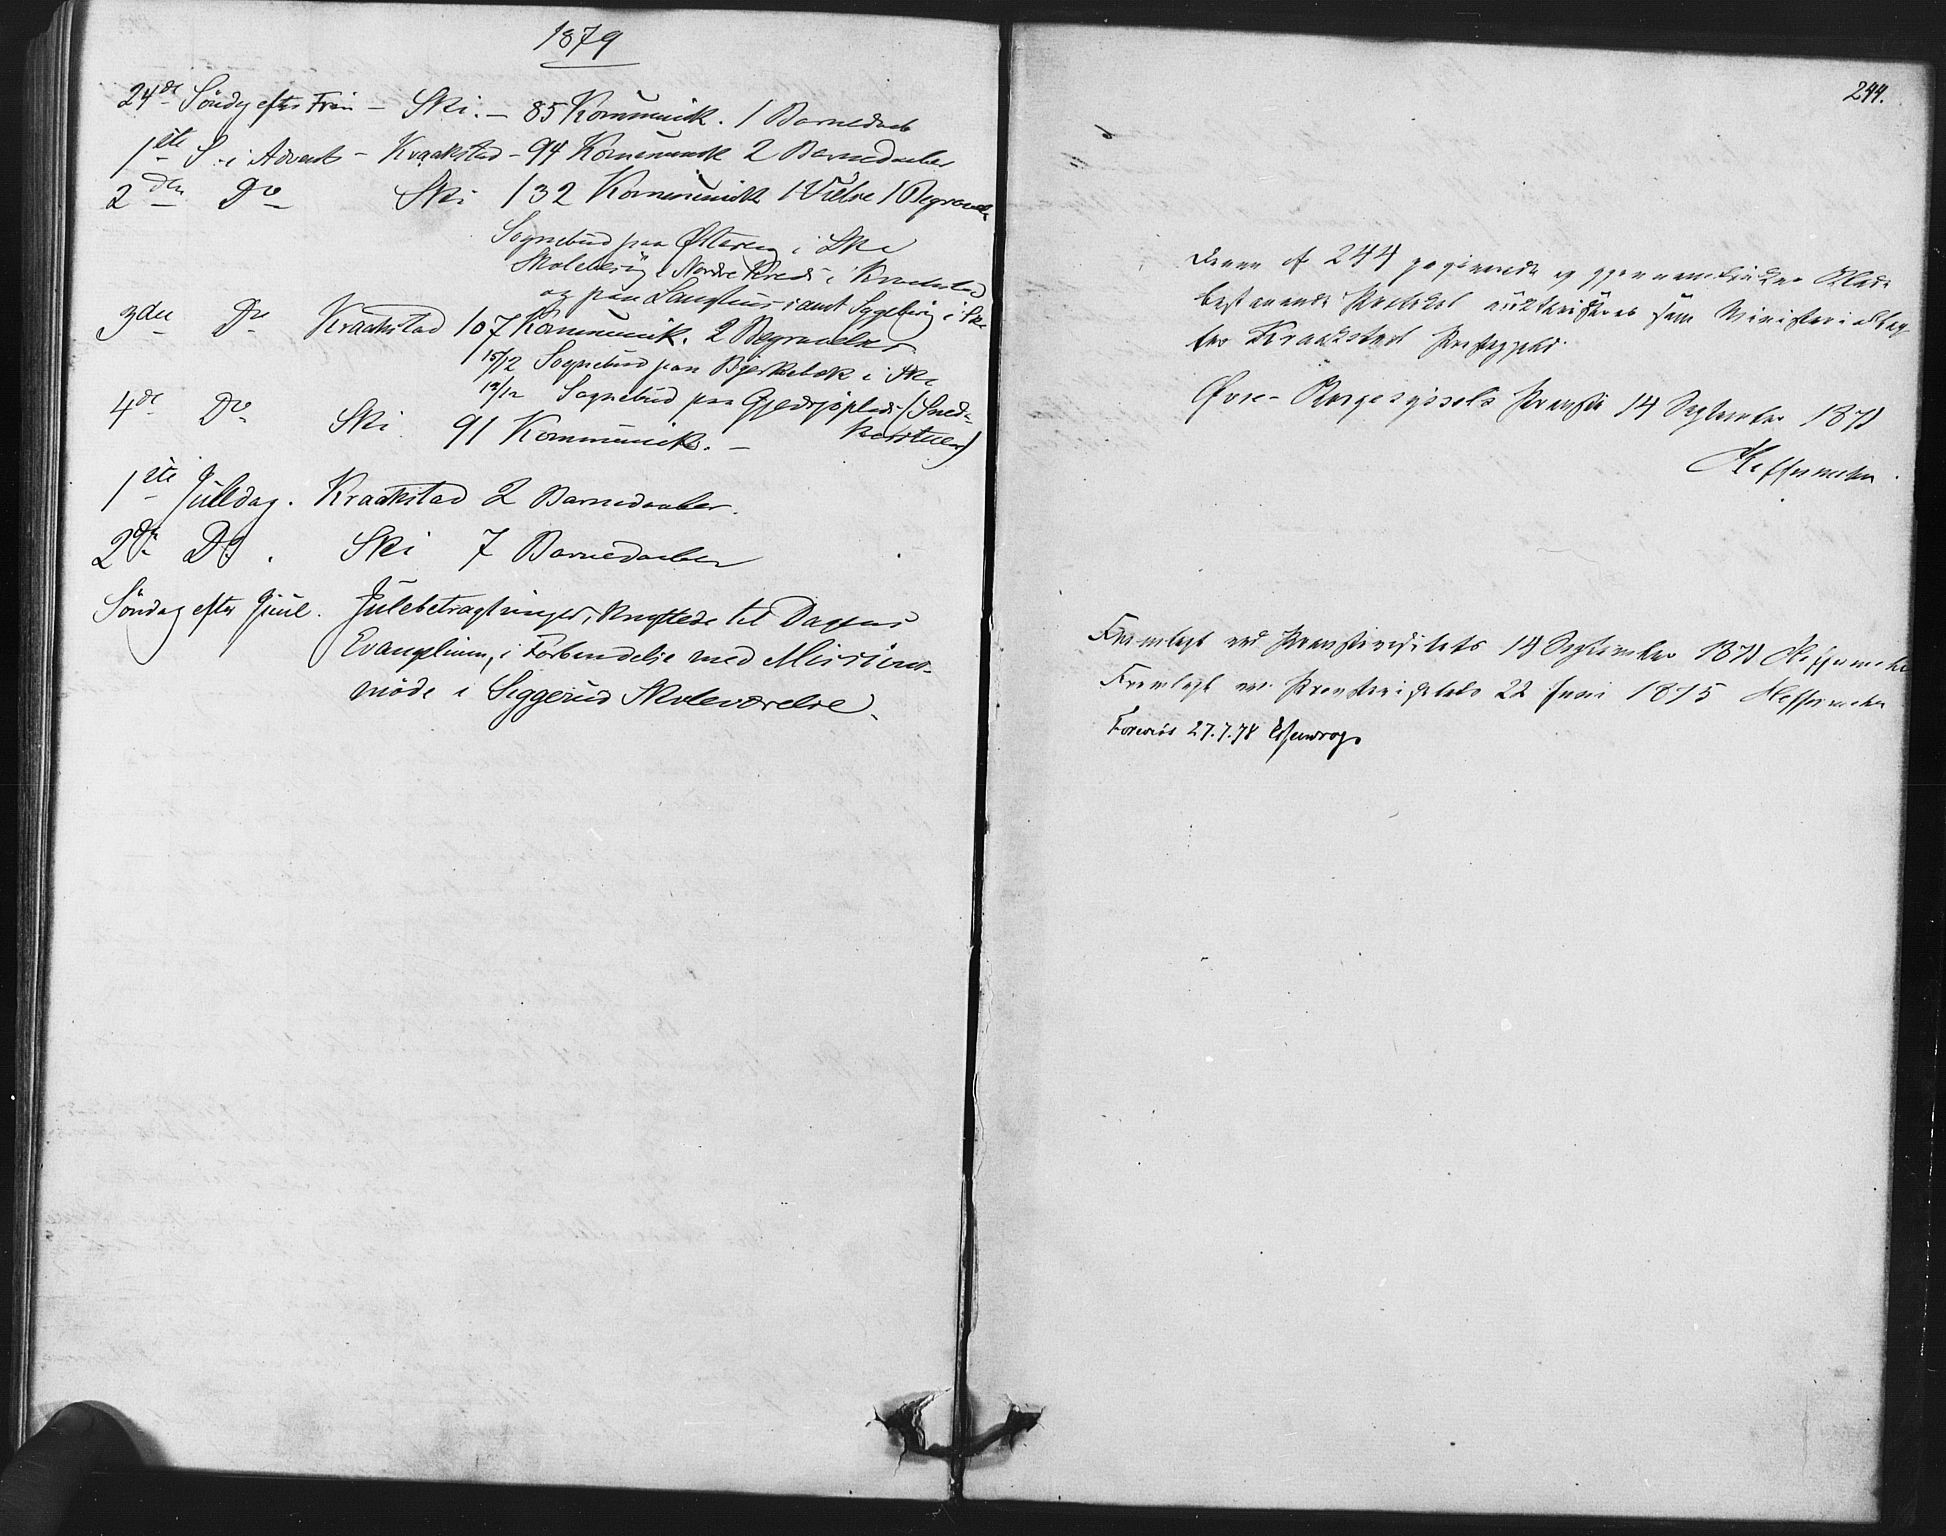 1879
24de Søndag efter Trin – Ski. – 85 Kommunik. 1 Barnedaab
1ste S. i Advent – Kraakstad – 94 Kommunik 2 Barnedaaber
2den Do Ski 132 Kommunik 1 Vielse 1 Begravelse
Sognebud paa Østeren i Ski
Skolebesøg i Nordre Kreds i Kraakstad
og paa Langhus samt Sygebesøg i Ski
3die Do Kraakstad 107 Kommunik. 2 Begravelser
15/12 Sognebud paa Bjerkebæk i Ski
12/12 Sognebud paa Gjedsjøplads (Sned-
kerstuen)
4de Do Ski 91 Kommunik. –
1ste Juledag. Kraakstad 2 Barnedaaber.
2den Do. Ski 7 Barnedaaber
Søndag efter Juul. Julebetragtninger, knyttede til Dagens
Evangelium, i Forbindelse med Missions-
møde i Siggerud Skoleværelse.
244.
Denne af 244 paginerede og gjennemtrukne Blade
bestaaende Protokol authoriseres som Ministerialbog
for Kraakstad Præstegjeld.
Øvre-Borgesyssels Provsti 14 September 1871
Heffermehl
Fremlagt ved Provstivisitats 14 September 1871 Heffermehl
Fremlagt ved Provstivisitats 22 Juni 1875 Heffermehl
Forevist 27.7.78 Essendrop